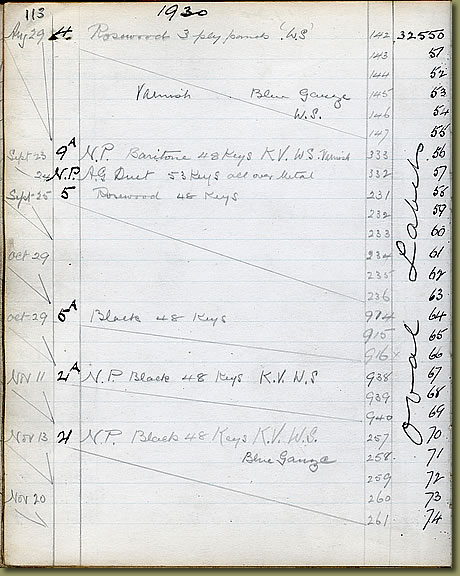 113 1930
Aug 29 4 Rosewood 3 ply panels 'W.S' 142 32550
143 51
144 52
Varnish Blue Gauze 145 53
W.S. 146 54
147 55
Sept 23 9A N.P. Baritone 48 Keys K.V. W.S. Varnish 333 56
24 N.P. A.G. Duet 53 Keys all over Metal 332 57
Sept 25 5 Rosewood 48 Keys 231 58
232 59
233 60
Oct 29 234 61
235 62
236 63
Oct 29 5A Black 48 Keys 974 64
915 65
916 x 66
Nov 11 2A N.P. Black 48 Keys K.V. W.S 938 67
939 68
940 69
Nov 13 21 N.P. Black 48 Keys K.V. W.S. 257 70
Blue Gauze 258 71
259 72
Nov 20 260 73
261 74
Oval Labels